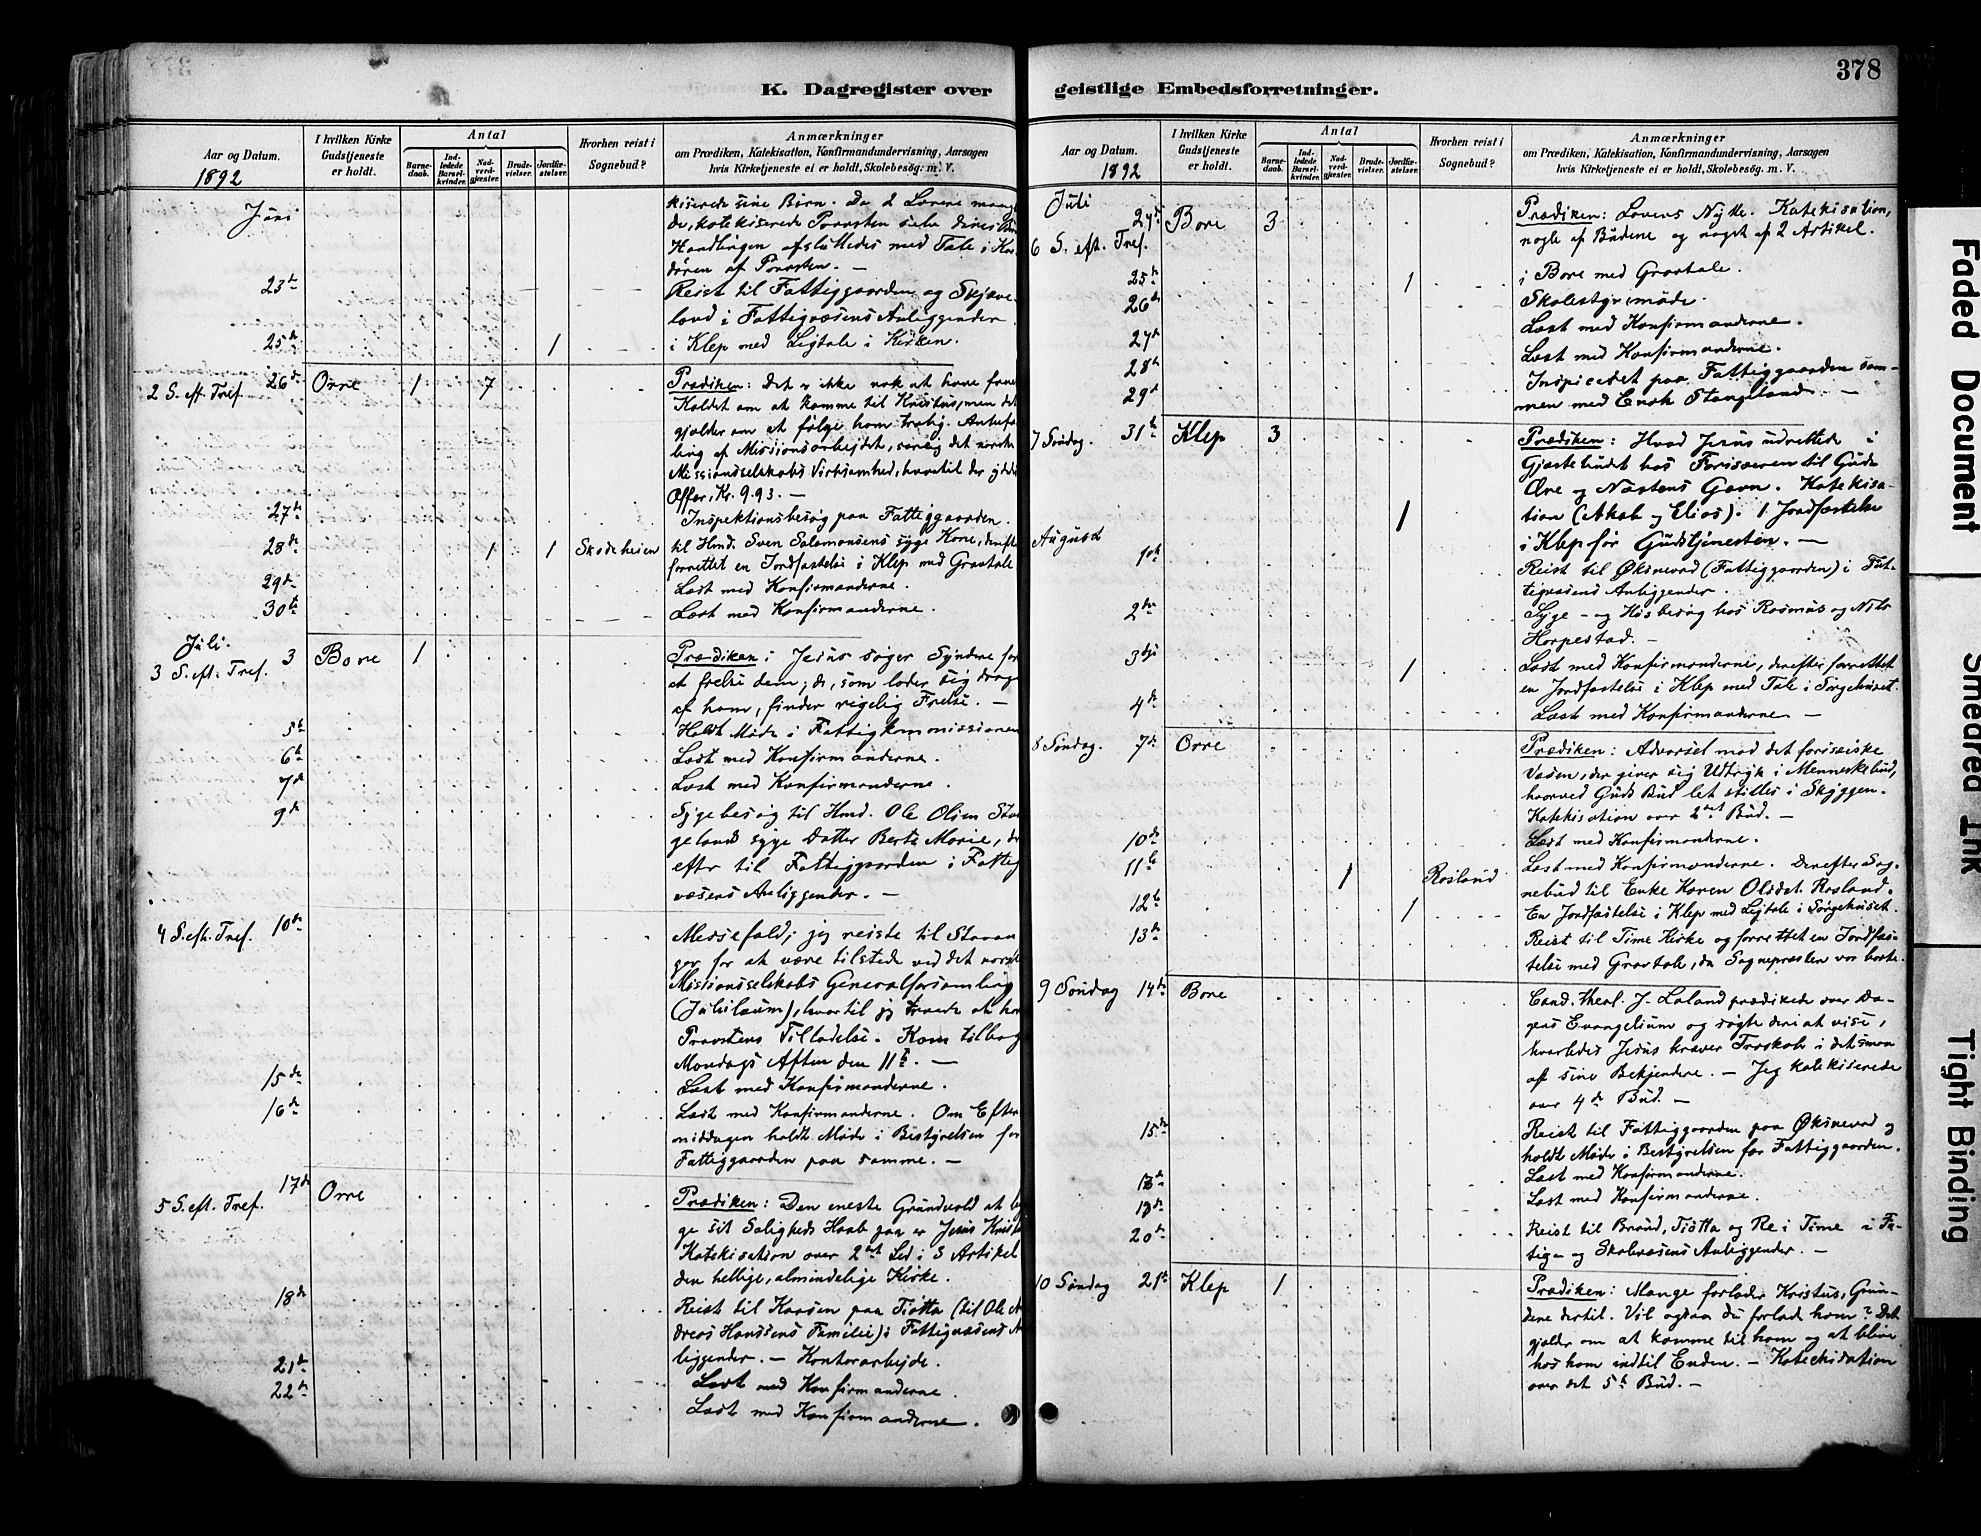 378
K. Dagregister over
Aar og Datum.
1892
I hvilken Kirke Gudstjeneste er holdt.
Antal
Barnedaab.
Indledede Barselkvinder.
Nadverdgjæster.
Brudevielser.
Jordfæstelser.
Hvorhen reist i Sognebud?
Anmærkninger
om Prædiken, Katekisation, Konfirmandundervisning, Aarsagen
hvis Kirketjeneste ei er holdt, Skolebesøg. m. V.
Juni
kiserede sine Børn. Da 2 Lærere
de, katekiserede Provsten
Handlingen afsluttedes med Tale i
døren af Provsten. —
23de Reist til Fattiggaarden og
land i Fattigvæsens Anliggender
25de 1 i Klep med Ligtale i Kirken.
2 S. eft. Tref. 26de Orre 1 7 Prædiken: Det er ikke nok at have
Kaldet om at komme til Kristus, men det
gjælder om at følge ham trolig.
ling af Missionsarbeidet, særlig det norske
Missionsselskabs Virksomhed, hvortil der
Offer, Kr. 9.93. —
27de Inspektionsbesøg paa Fattiggaarden.
28de 1 1 Skadeheien til Hmd. Sven Salomonsens syge Kone,
forrettet en Jordfæstelse i Klep med Gravtale
29de Læst med Konfirmanderne.
30te Læst med Konfirmanderne.
Juli.
3 S. eft. Tref. 3 Bore 1 Prædiken: Jesus søger Syndere for
at frelse dem; de, som lader sig drage
af ham, finder rigelig Frelse. —
5te Holdt Møde i Fattigkommissionen
6te Læst med Konfirmanderne.
7de Læst med Konfirmanderne.
9de Sygebesøg til Hmd. Ole Olsen
gelands syge Datter Berte Marie,
efter til Fattiggaarden i
væsens Anliggender. —
4 S. eft. Tref. 10de Messefald; jeg reiste til
ger for at være tilstede ved det norske
Missionsselskabs Generalforsamling
(Jubilæum), hvortil jeg
Provstens Tilladelse. Kom tilbage
Mandags Aften den 11te. —
15de Læst med Konfirmanderne.
16de Læst med Konfirmanderne. Om Efter
middagen holdt Møde i Bestyrelsen for
Fattiggaarden paa samme. —
5 S. eft. Tref. 17de Orre Prædiken: Den eneste Grundvold at
ge sit Saligheds Haab paa er Jesus
Katekisation over 2det Led i 3 Artikel
den hellige, almindelige Kirke.
18de Reist til Kaasen paa Tiøtta (til Ole
dreas Hanssens Familie) i Fattigvæsens
liggender. — Kontorarbejde.
21de Læst med Konfirmanderne.
22de Læst med Konfirmanderne.
geistlige Embedsforretninger.
Aar og Datum.
1892
I hvilken Kirke Gudstjeneste er holdt.
Antal
Barnedaab.
Indledede Barselkvinder.
Nadverdgjæster.
Brudevielser.
Jordfæstelser.
Hvorhen reist i Sognebud?
Anmærkninger
om Prædiken, Katekisation, Konfirmandundervisning, Aarsagen
hvis Kirketjeneste ei er holdt, Skolebesøg. m. V.
Juli
24de Bore 3 Prædiken: Lovens Nytte. Katekisation,
6 S. eft. Tref. nogle af Budene og noget af 2 Artikel.
25de 1 i Bore med Gravtale.
26de Skolestyremøde.
27de Læst med Konfirmanderne.
28de Læst med Konfirmanderne.
29de Inspiceret paa Fattiggaarden sam-
men med Enok Stangeland. —
7 Søndag. 31te Klep 3 Prædiken: Hvad Jesus udrettede i
Gjæstebudet hos Farisæeren til Guds
Ære og Næstens Gavn. Katekisa-
1 tion (Akab og Elias). 1 Jordfæstelse
i Klep før Gudstjenesten. —
August
1ste Reist til Øksnevad (Fattiggaarden) i Fat-
tigvæsens Anliggender.
2den Syge- og Husbesøg hos Rasmus og Nils
Horpestad. —
3dje 1 Læst med Konfirmanderne, derefter forrettet
en Jordfæstelse i Klep med Tale i Sørgehuset.
4de Læst med Konfirmanderne —
8 Søndag. 7de Orre Prædiken: Advarsel mod det farisæiske
Væsen, der giver sig Udtryk i Menneskebud,
hvorved Guds Bud let stilles i Skyggen.
Katekisation over 2det Bud. —
10de Læst med Konfirmanderne.
11te 1 Rosland Læst med Konfirmanderne. Derefter Sog-
nebud til Enke Karen Olsdt. Rosland.
12te 1 En Jordfæstelse i Klep med Ligtale i Sørgehuset.
13de Reist til Time Kirke og forrettet en Jordfæs-
telse med Gravtale, da Sognepræsten var borte.
9 Søndag 14de Bore Cand. theol. J. Laland prædikede over Da-
gens Evangelium og søgte deri at vise,
hvorledes Jesus kræver Troskab i det smaa
af sine Bekjendere. — Jeg katekiserede
over 4de Bud. —
15de Reist til Fattiggaarden paa Øksnevad og
holdt Møde i Bestyrelsen for Fattiggaarden.
Læst med Konfirmanderne.
Læst med Konfirmanderne.
20de Reist til Braud, Tiøtta og Re i Time i Fa-
tig- og Skolevæsens Anliggender. —
10 Søndag 21de Klep 1 Prædiken: Mange forlader Kristus, Grun-
dene dertil. Vil ogsaa du forlade ham? Det
gjælder om at komme til ham og at blive
hos ham indtil Enden. — Katechisation
over det 5te Bud. —
Faded Document
Smeared Ink
Tight Binding